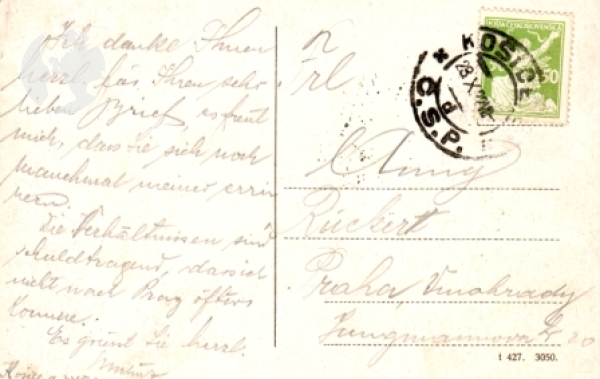 Ich danke Ihnen
herzl. für Ihren sehr
lieben Brief, es freut
mich, dass Sie sich noch
manchmal meiner errin
nern.
Die Verhältnissen sind
schuldtragend, dass ich
nicht nach Prag öfters
komme.
Es grüsst Sie herzl.
Frl
Anny
Rückert
Praha, Vinohrady
Jungmannova tř 20
POŠTA ČESKOSLOVENSKÁ
50
KOŠICE
Č.S.P.
1 427. 3050.